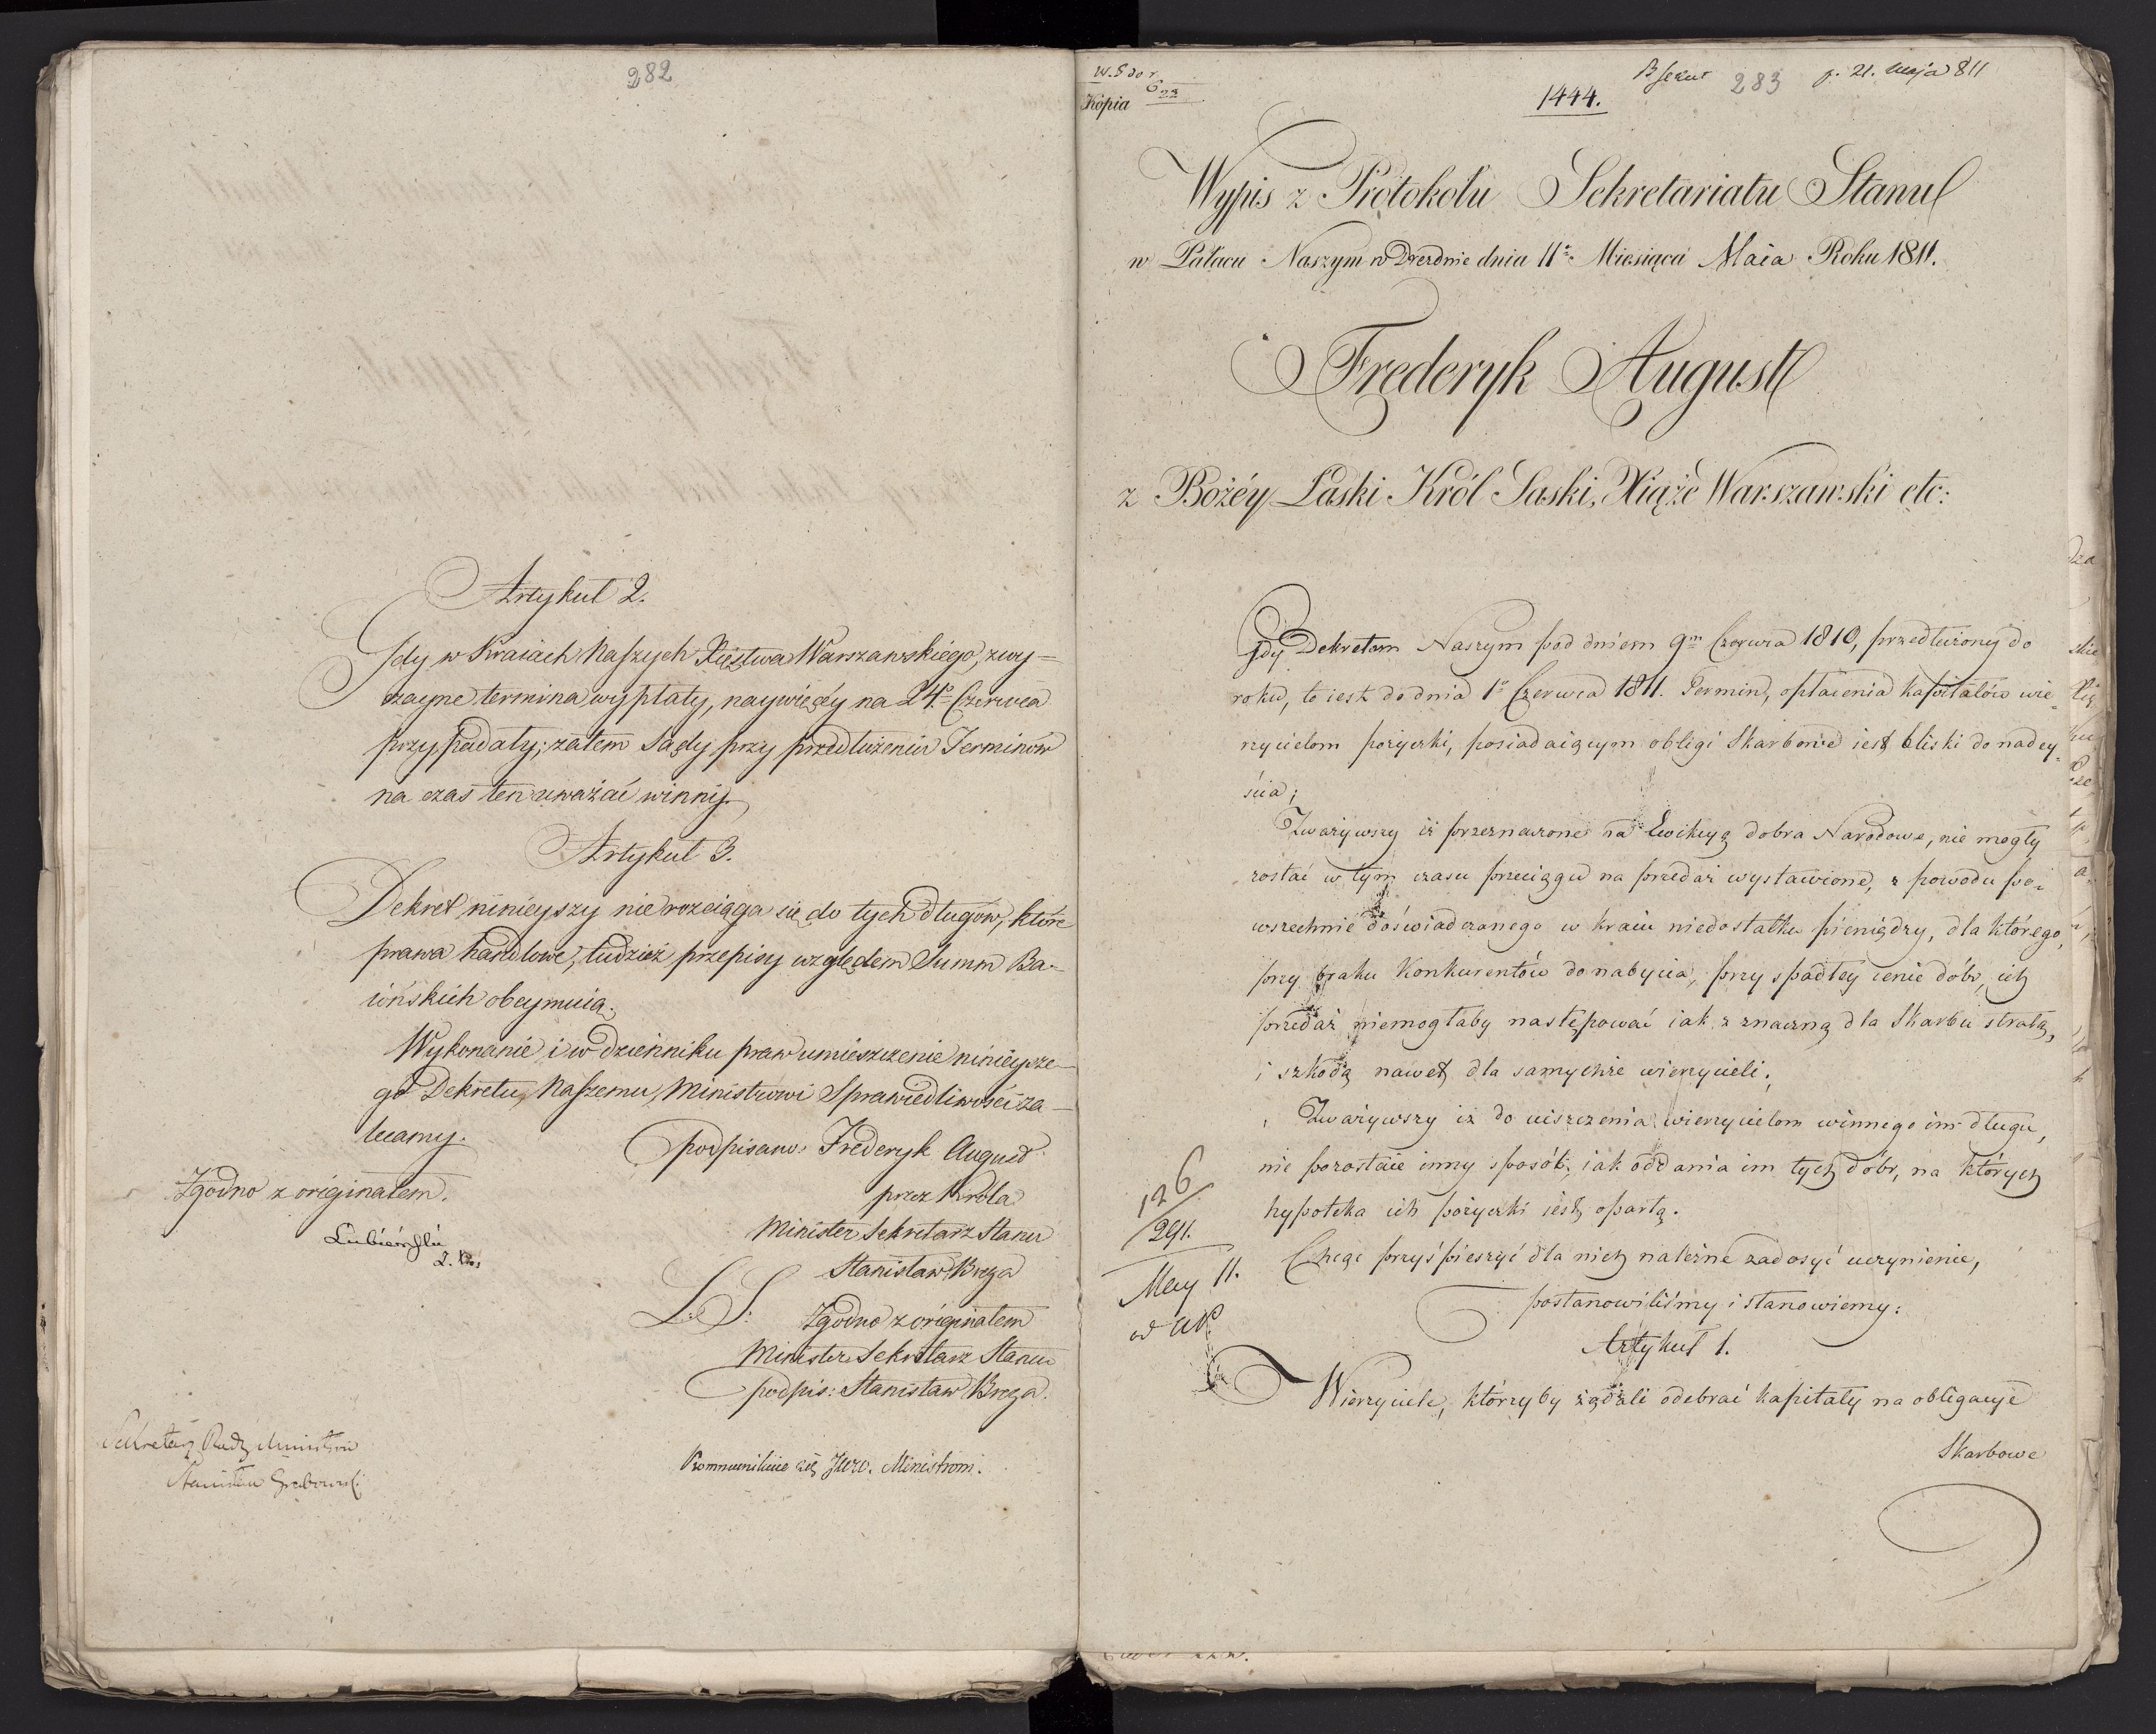 282
Artykuł 2.
Gdy w Kraiach Naszych Xięstwa Warszawskiego, zwy=
czayne termina wypłaty, naywięcéy na 24º Czerwca
przypadały; zatem Sądy przy przedłużeniu Terminów
na czas ten uważać winny.
Artykuł 3.
Dekret ninieyszy nie rozciąga się do tych długów, które
prawa handlowe, tudzież przepisy względem Summ Ba-
iońskich obeymuią.
Wykonanie i w dzienniku praw umieszczenie ninieysze-
go Dekretu, Naszemu Ministrowi Sprawiedliwości za-
lecamy.
podpisano: Frederyk August
Zgodno z originałem.
przez Króla
Lubieński
Minister Sekretarz Stanu
Stanisław Breza
L. S. Zgodno z originałem
Minister Sekretarz Stanu
podpis: Stanisław Breza.
Sekretarz Rady Ministrów
Stanisław Grabowski
Kommunikuie się JWW. Ministrom.
283 21. Maja 811
Kopia
1444.
Wypis z Protokołu Sekretariatu Stanu
w Pałacu Naszym w Dreźnie dnia 11º Miesiąca Maia Roku 1811.
Frederyk August
z Bożéy Łaski Król Saski, Xiąże Warszawski etc:
Gdy Dekretem Naszym pod dniem 9m Czerwca 1810, przedłużony do
roku, to iest do dnia 1º Czerwca 1811. Termin, opłacenia kapitałów wie=
rzycielom pożyczki, posiadaiącym obligi Skarbowe iest bliski do nadey=
ścia;
Zważywszy iż przeznaczone na Ewikcyą dobra Narodowe, nie mogły
zostać w tym czasu przeciągu na przedaż wystawione, z powodu po=
wszechnie doświadczanego w kraiu niedostatku pieniędzy, dla którego,
przy braku Konkurentów do nabycia, przy spadłey cenie dóbr, ich
przedaż niemogłaby następować iak z znaczną dla Skarbu stratą,
i szkodą nawet dla samychże wierzycieli;
Zważywszy iż do uiszczenia wierzycielom winnego im długu,
nie pozostaie inny sposób, iak oddania im tych dóbr, na których
hypoteka ich pożyczki iest opartą.
Chcąc przyśpieszyć dla nich należne zadosyć uczynienie,
postanowiliśmy i stanowiemy:
126
291.
May 11.
Artykuł 1.
Wierzyciele, którzyby żądali odebrać kapitały na obligacye
Skarbowe